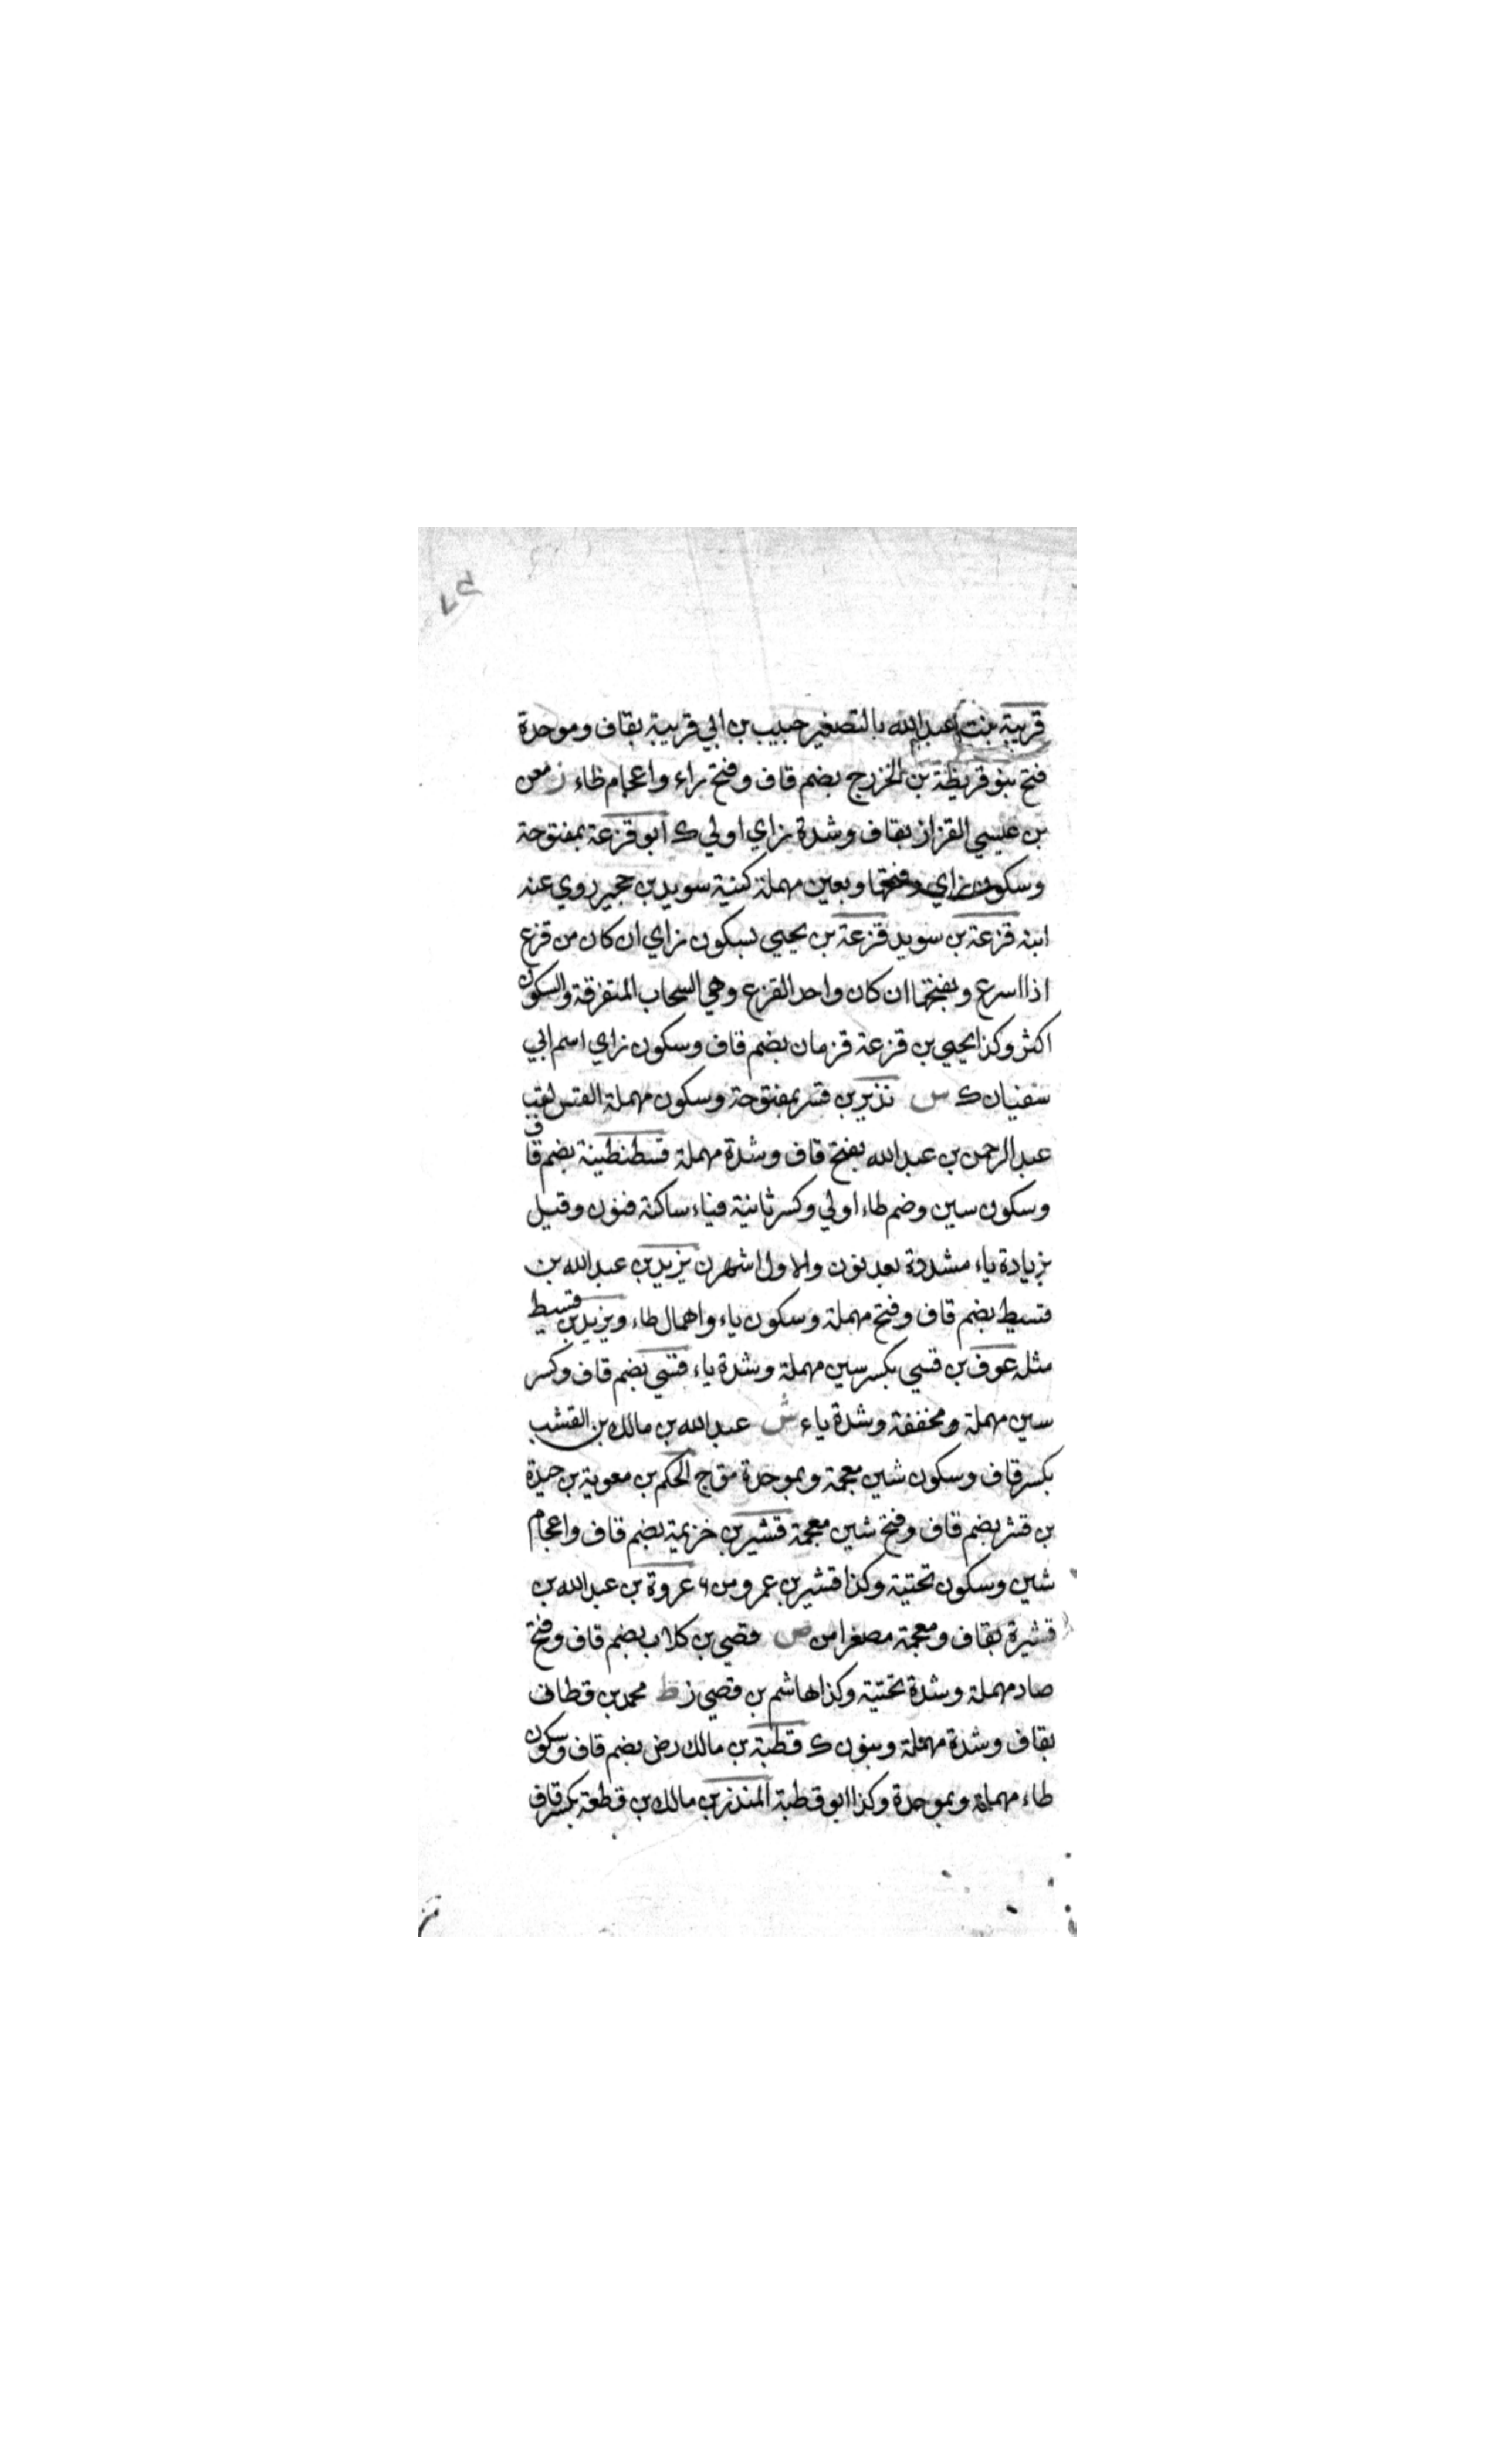 قريبة بنت عبد الله بالتصغير حبيب بن ابي قريبة بقاف وموحدة
فتح بنو قريظة بن الخزرج بضم قاف وفتح راء واعجام ظاء ز معن
بن عيسي القزاز بقاف وشدة زاي اولي ك ابو قزعة بمفتوحة
وسكون زاي وفتحها وبعين مهملة كنية سويد بن حجير روي عنه
ابنه قزعة بن سويد قزعة بن يحيي بسكون زاي ان كان من قزع
اذا اسرع وبفتحها ان كان واحد القزع وهي السحاب المتفرقة والسكون
اكثر وكذا يحيي بن قزعة قزمان بضم قاف وسكون زاي اسم ابي
سفيان ك س نذير بن قسر بمفتوحة وسكون مهملة القس لقب
عبد الرحمن بن عبد الله بفتح قاف وشدة مهملة قسطنطينة بضم قاف
وسكون سين وضم طاء اولي وكسر ثانية فياء ساكنة فنون وقيل
بزيادة ياء مشددة بعد نون والاول اشهر ن يزيد بن عبد الله بن
قسيط بضم قاف وفتح مهملة وسكون ياء واهمال طاء ويزيد بن قسيط
مثله عوف بن قسي بكسر سين مهملة وشدة ياء قسي بضم قاف وكسر
سين مهملة ومخففة وشدة ياء ش عبد الله بن مالك بن القشب
بكسر قاف وسكون شين معجمة وبموحدة مق ج الحكم بن معوية بن حيدة
بن قشر بضم قاف وفتح شين معجمة قشير بن خزيمة بضم قاف واعجام
شين وسكون تحتية وكذا قشير بن عمرو س ء عروة بن عبد الله بن
قشيرة بقاف ومعجمة مصغرا س ض قصي بن كلاب بضم قاف وفتح
صاد مهملة وشدة تحتية وكذا هاشم بن قصي ز ط محمد بن قطان
بقاف وشدة مهملة وبنون ك قطبة بن مالك رض بضم قاف وسكون
طاء مهملة وبموحدة وكذا ابو قطبة المنذر بن مالك بن قطعة بكسر قاف